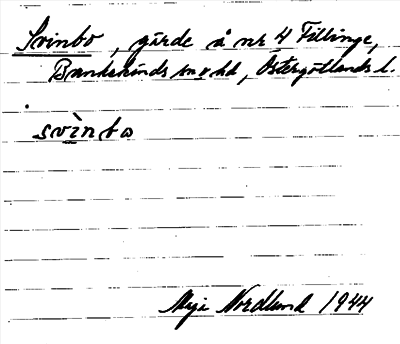 Svinbo, gärde å nr 4 Fillinge,
Bankekinds sn o hd, Östergötlands l.
svìnbo
Maja Nordlund 1944